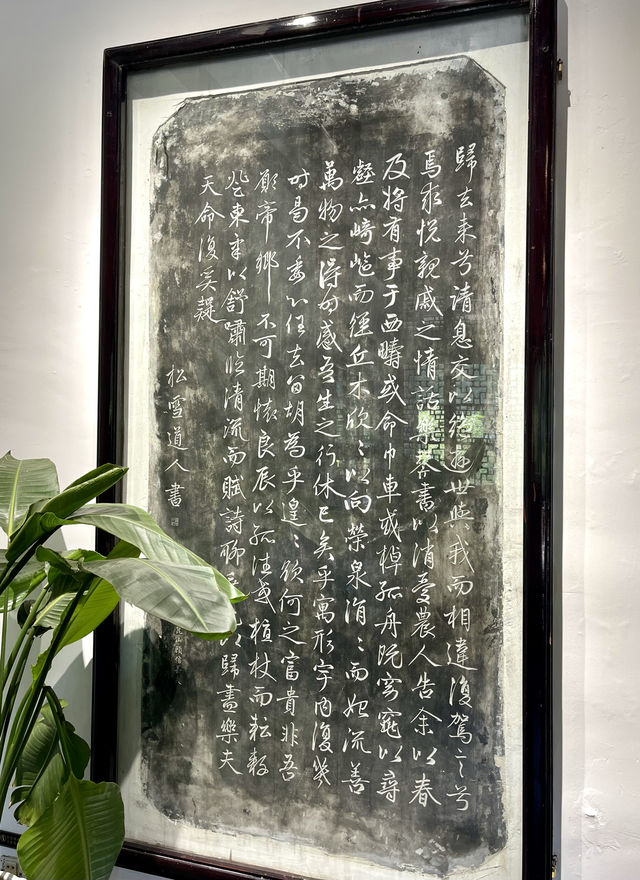 歸去来兮請息交以絶遊世與我而相違復駕言兮
焉求悦親戚之情話樂琴書以消憂農人告余以春
及將有事于西疇或命巾車或棹孤舟既窈窕以尋
壑亦崎嶇而徑丘木欣〻以向榮泉涓〻而始流善
萬物之得時感吾生之行休已矣乎寓形宇内復幾
時曷不委心任去留胡為乎遑〻欲何之富貴非吾
願帝鄉不可期懷良辰以孤往或植杖而耘耔
登東皋以舒嘯臨清流而賦詩聊以歸盡樂夫
天命復奚疑
松雪道人書